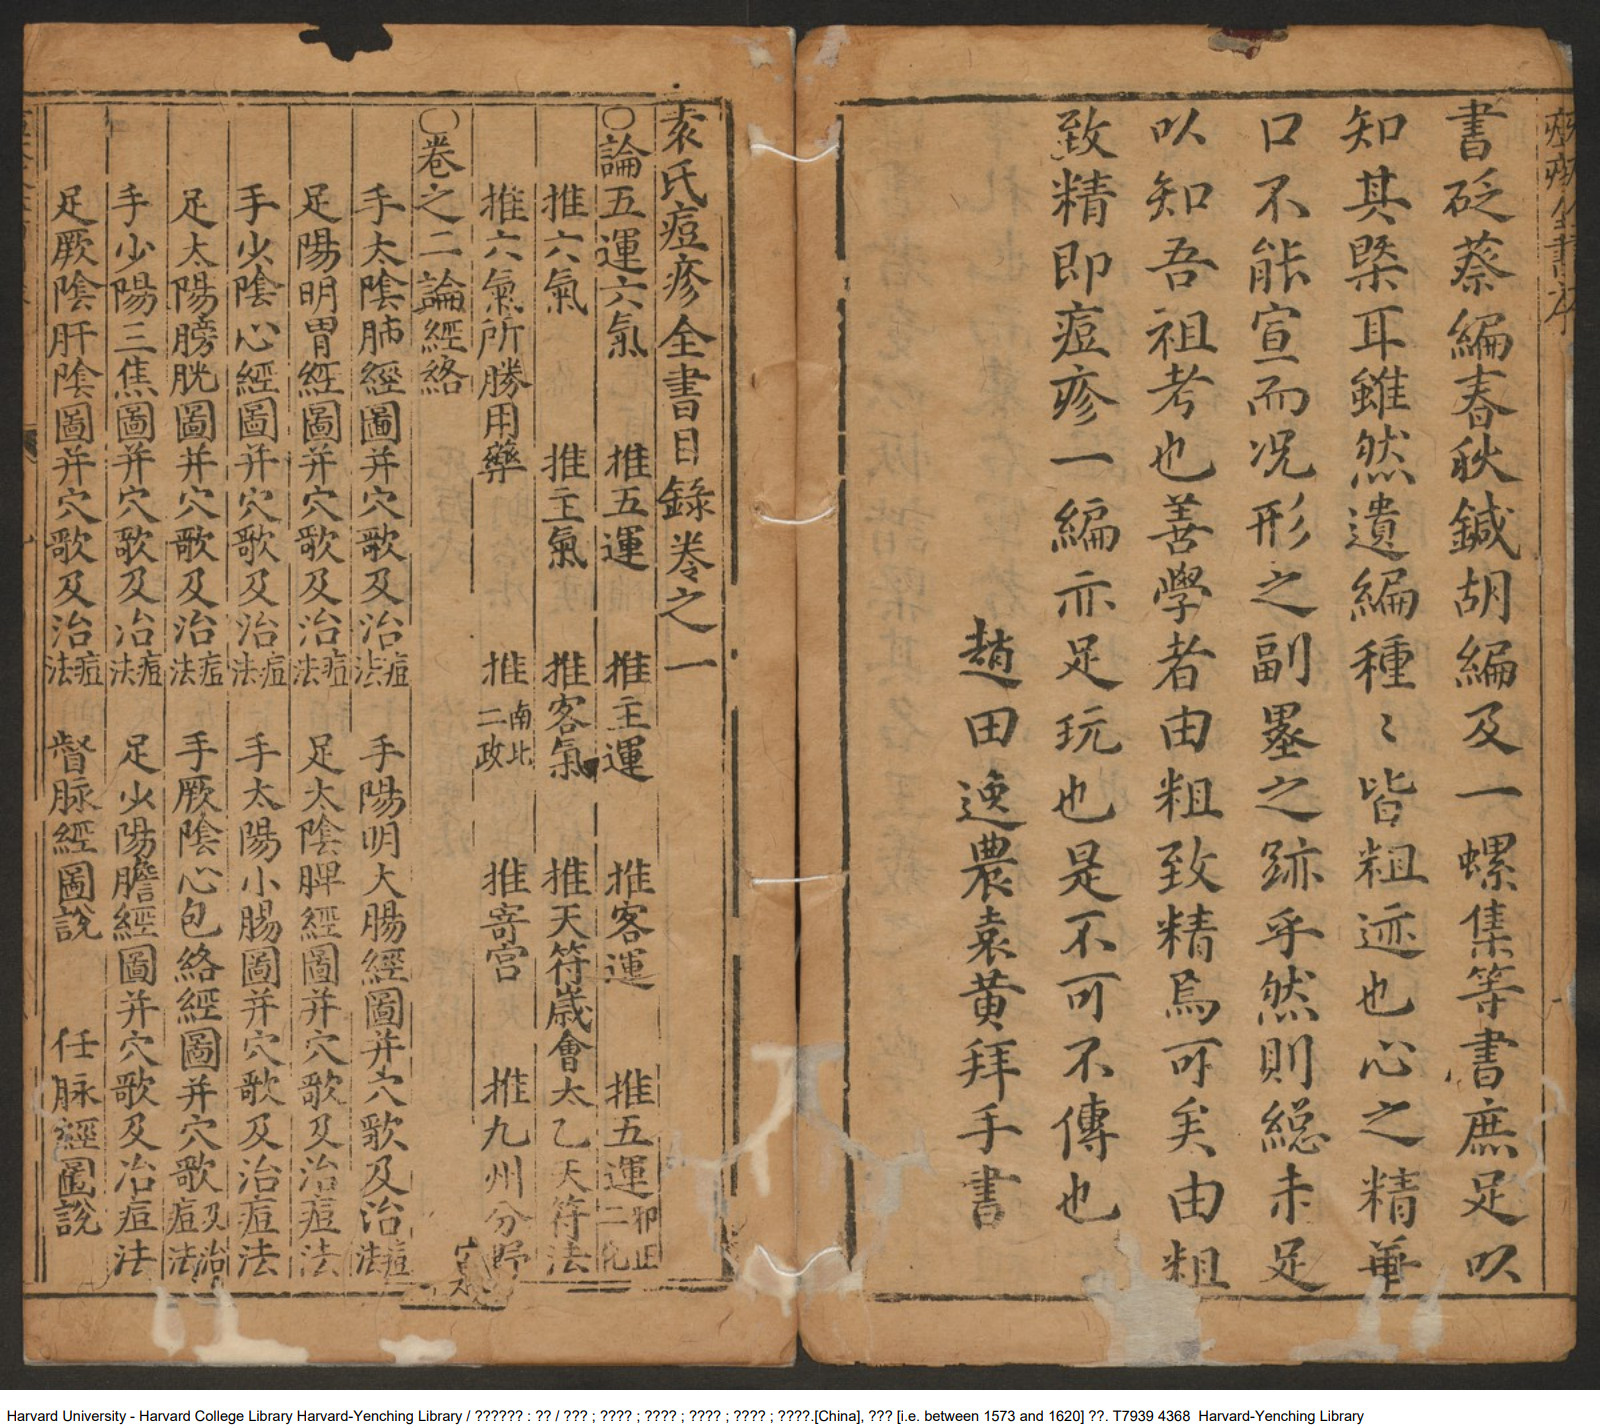 痘疹全書序
書砭蔡編春秋鍼胡編及一螺集等書庶足以
知其槩耳雖然遺編種〻皆粗迹也心之精華
口不能宣而况形之副墨之跡乎然則総未足
以知吾祖考也善學者由粗致精焉可矣由粗
致精即痘疹一編亦足玩也是不可不傳也
趙田逸農袁黃拜手書
袁氏痘疹全書目錄卷之一
〇論五運六氣 推五運 推主運 推客運 推五運邪正二化
推六氣 推主氣 推客氣 推天符歲會太乙天符法
推六氣所勝用藥 推南北二政 推寄宫 推九州分野
〇卷之二論經絡
手太陰肺經圖并穴歌及治痘法 手陽明大腸經圖并穴歌及治痘法
足陽明胃經圖并穴歌及治痘法 足太陰脾經圖并穴歌及治痘法
手少陰心經圖并穴歌及治痘法 手太陽小腸圖并穴歌及治痘法
足太陽膀胱圖并穴歌及治痘法 手厥陰心包絡經圖并穴歌及治痘法
手少陽三焦圖并穴歌及治痘法 足少陽膽經圖并穴歌及治痘法
足厥陰肝陰圖并穴歌及治痘法 督脉經圖說 任脉經圖說
Harvard University - Harvard College Library Harvard-Yenching Library / ?????? : ?? / ??? ; ???? ; ???? ; ???? ; ???? ; ????.[China], ??? [i.e. between 1573 and 1620] ??. T7939 4368 Harvard-Yenching Library